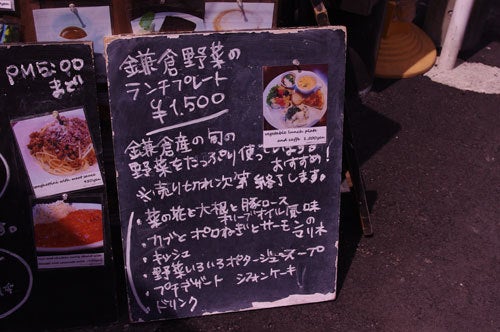 PM5:00
まで
spaghettini with meat sauce
鎌倉野菜の
ランチプレート
¥1,500
vegetable lunch plate
and caffe 1,500yen
鎌倉産の旬の
野菜をたっぷり使っています
おすすめ!
※売り切れ次第終了します。
・菜の花と大根と豚ロース
オリーブオイル風味
・カブとポロねぎとサーモンの
マリネ
・キッシュ
・野菜いろいろポタージュスープ
・プチデザート シフォンケーキ
・ドリンク